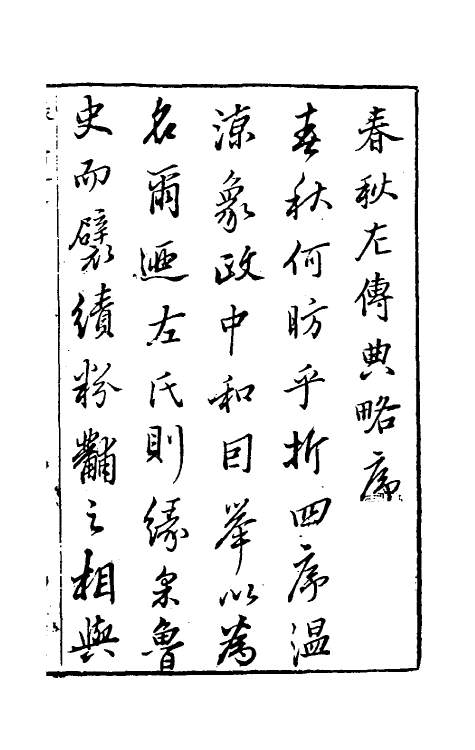 春秋左傳典略序
春秋何昉乎折四序溫
涼象政中和因舉以為
名爾迺左氏則緣魯
史而襞績粉黼之相與